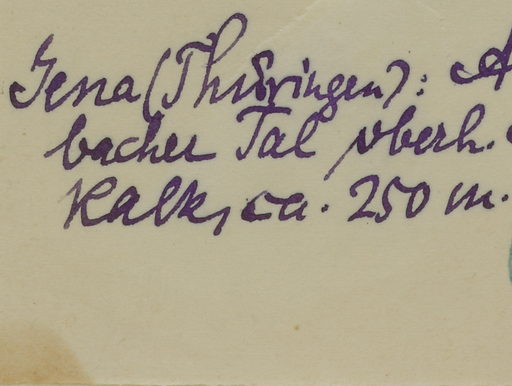 Jena (Thüringen): A
bacher Tal oberh.
Kalk, ca. 250 m.